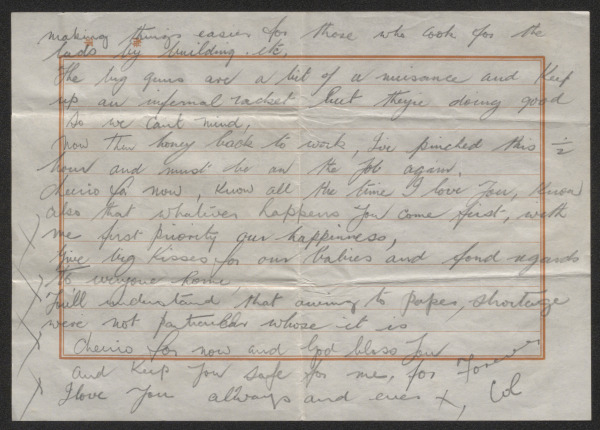 making things easier for those who cook for the
lads by building. etc.
The big guns are a bit of a nuisance and Keep
up an infernal racket but theyre doing good
so we cant mind,
now then honey back to work, I've pinched this ½
hour and must be on the job again.
cheerio for now, Know all the time I love You, Know
also that whatever happens You come first, with
me first priority your happinness,
Give big Kisses for our babies and fond regards
to everyone home
You'll understand that owing to paper, shortage
were not particular whose it is
cheerio for now and God bless You
and Keep You safe for me, for Forever
I love You allways and ever X, Col